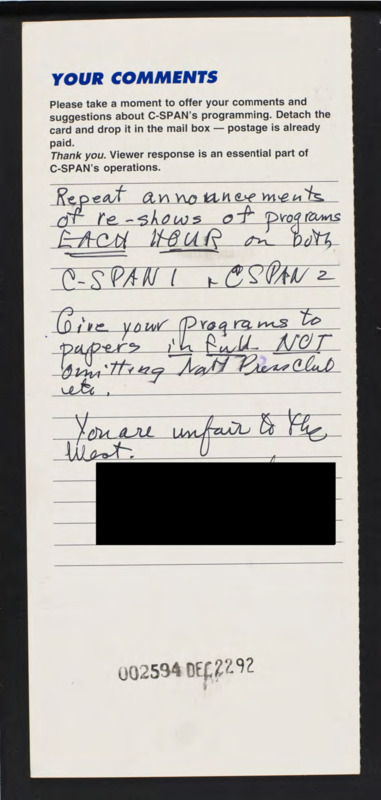 YOUR COMMENTS
Please take a moment to offer your comments and
suggestions about C-SPAN's programming. Detach the
card and drop it in the mail box — postage is already
paid.
Thank you. Viewer response is an essential part of
C-SPAN's operations.
Repeat announcements
of re-shows of programs
EACH HOUR on both
C-SPAN 1 + CSPAN 2
Give your programs to
papers in full NOT
omitting Nat'l Press Club
etc.
You are unfair to the
West.
002594 DEC 22 92